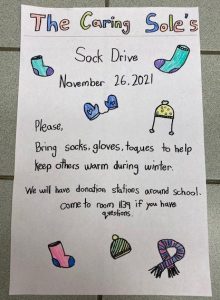 The Caring Sole's
Sock Drive
November 26, 2021
Please,
Bring socks, gloves, toques to help
keep others warm during winter.
We will have donation stations around school.
Come to room 1139 if you have
questions.